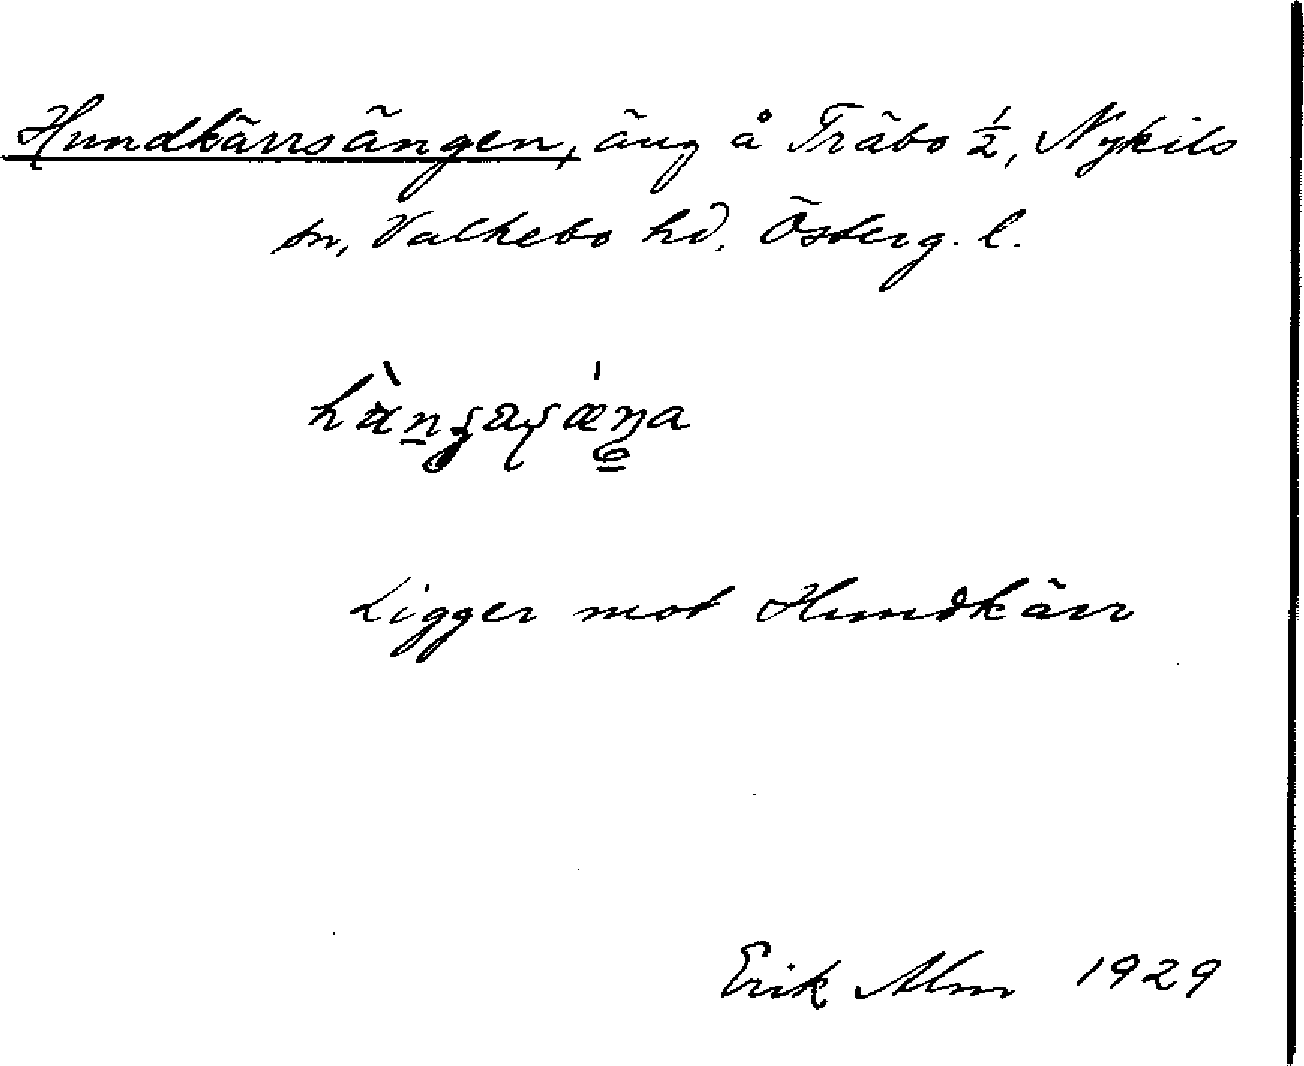 Hundkärrsängen, äng å Träbo ½, Nykils
sn, Valkebo hd. Österg. l.
Ligger mot Hundkärr
Erik Alm 1929